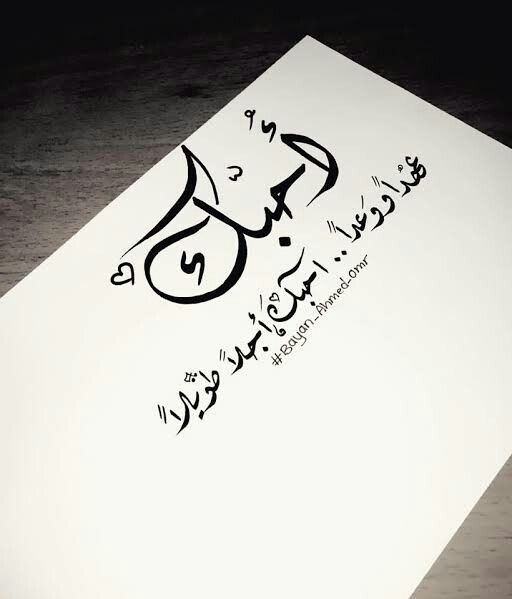 أُحبّك
عهداً ووعداً .. احبك أجلاً طويلاً
#Bayan_Ahmed_omr